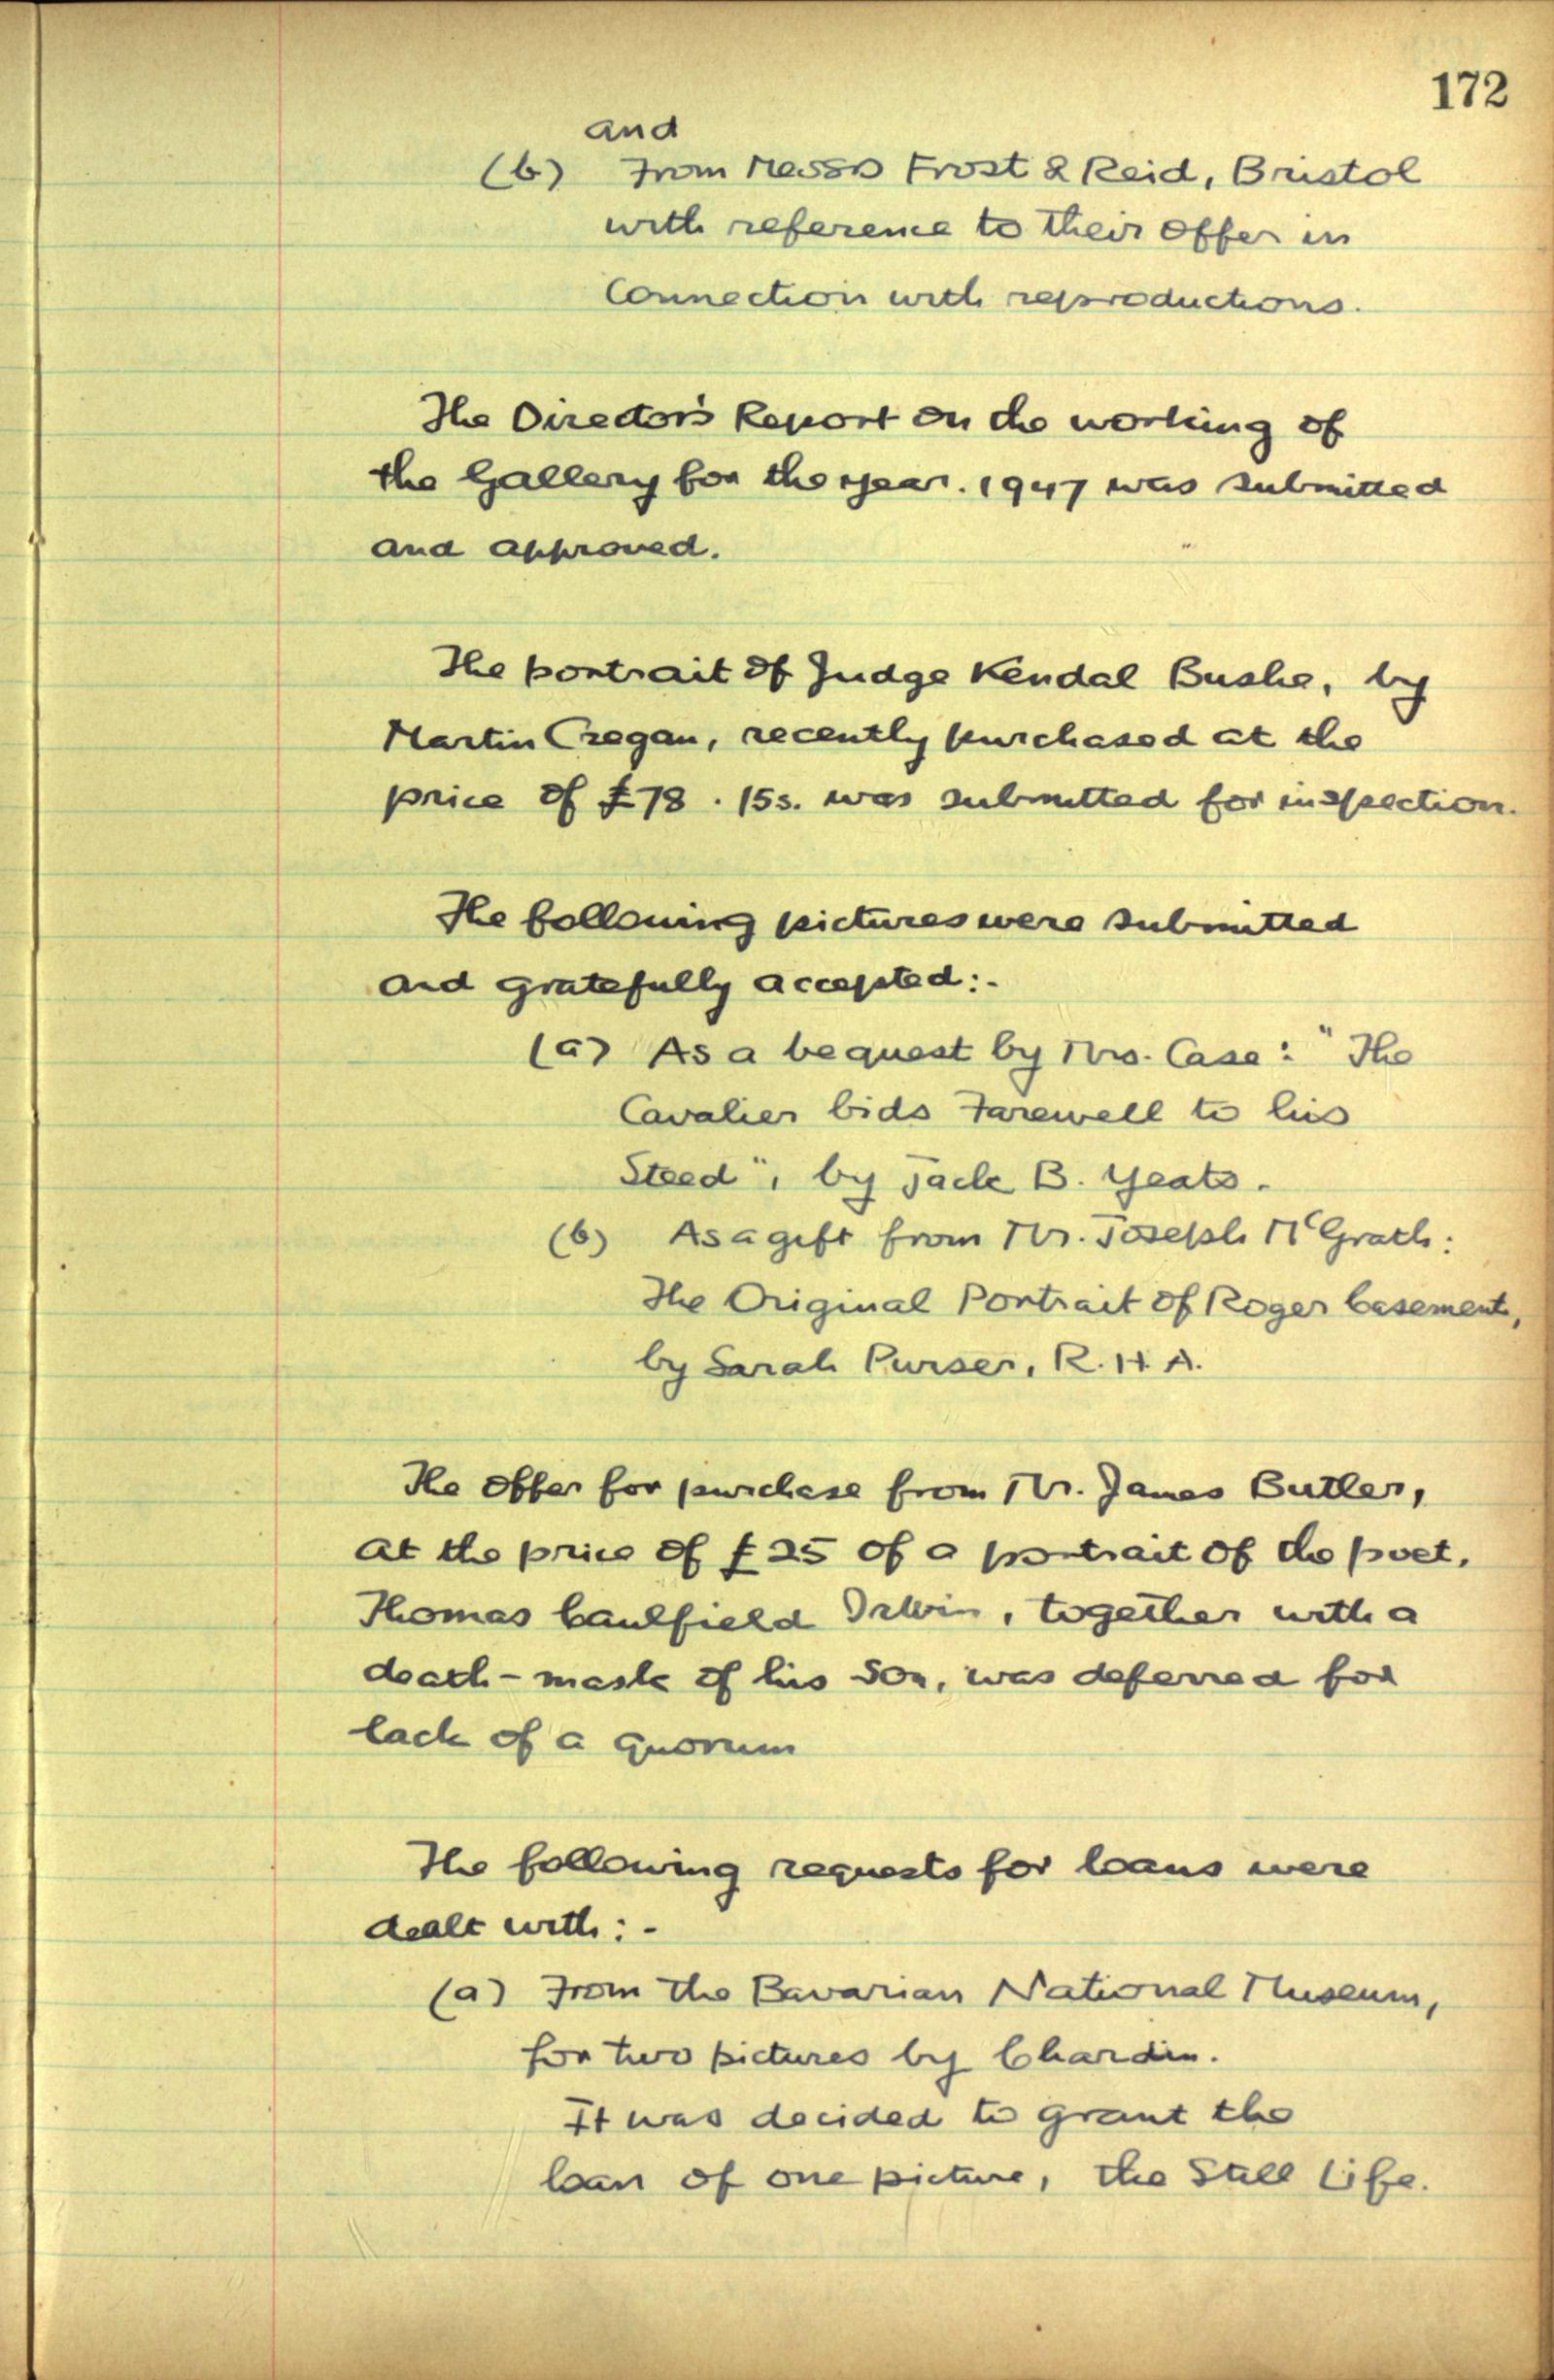 172
and
(b) From Messrs Frost & Reid, Bristol
with reference to their offer in
Connection with reproductions.
The Director's Report on the working of
the Gallery for the year. 1947 was submitted
and approved.
The portrait of Judge Kendal Bushe, by
Martin Cregan, recently purchased at the
price of £78 . 15s. was submitted for inspection.
The following pictures were submitted
and gratefully accepted:-
(a) As a bequest by Mrs. Case: "The
Cavalier bids Farewell to his
Steed", by Jack B. Yeats.
(b) As a gift from Mr. Joseph McGrath:
The Original Portrait of Roger Casement,
by Sarah Purser, R.H.A.
The offer for purchase from Mr. James Butler,
at the price of £25 of a portrait of the poet,
Thomas Caulfield Irwin, together with a
death-mask of his son, was deferred for
lack of a quorum
The following requests for loans were
dealt with:-
(a) From the Bavarian National Museum,
for two pictures by Chardin.
It was decided to grant the
loan of one picture, the Still Life.